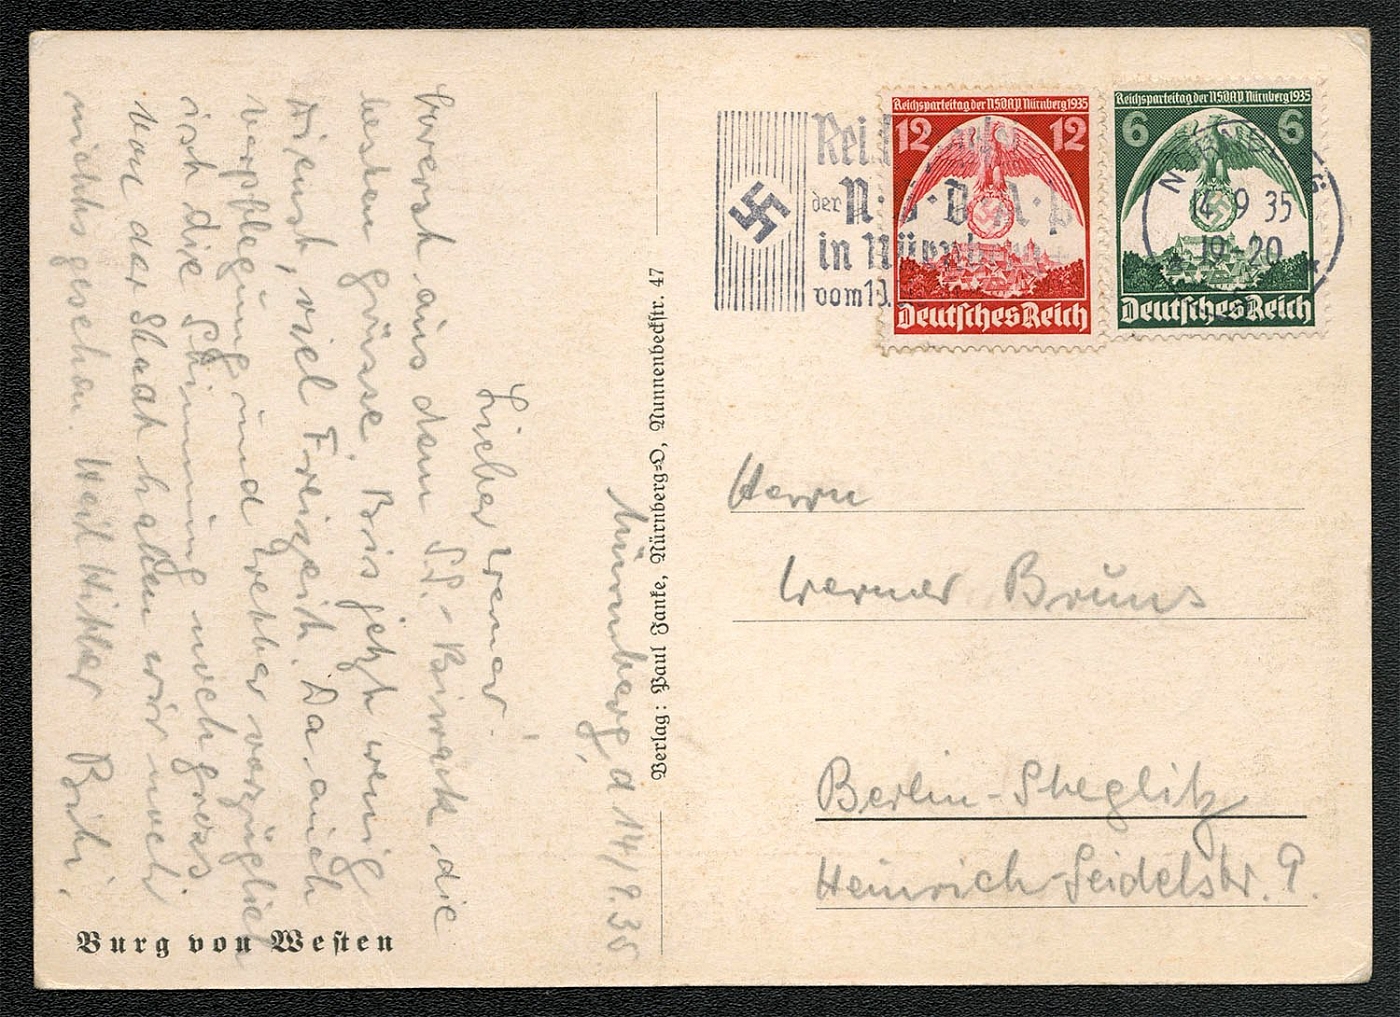 Nürnberg, d 14/9.35
Lieber Werner!
Vorerst aus dem SS.-Biwack die
besten Grüsse. Bis jetzt wenig
Dienst, viel Freizeit. Da auch
Verpflegung und Wetter vorzüglich
ist die Stimmung noch gross
Von der Stadt haben wir noch
nichts gesehen. Heil Hitler
Burg von Westen
Verlag: Paul Janke, Nürnberg=O, Nunnenbeckstr. 47
der N·S·D·A·P
in Nürnberg
vom 10.
Reichsparteitag der NSDAP Nürnberg 1935
12 12
Deutsches Reich
Reichsparteitag der NSDAP Nürnberg 1935
6 6
Deutsches Reich
NÜRNBERG
14 9 35
19-20
Herrn
Werner Bruns
Berlin-Steglitz
Heinrich-Seidelstr. 9.